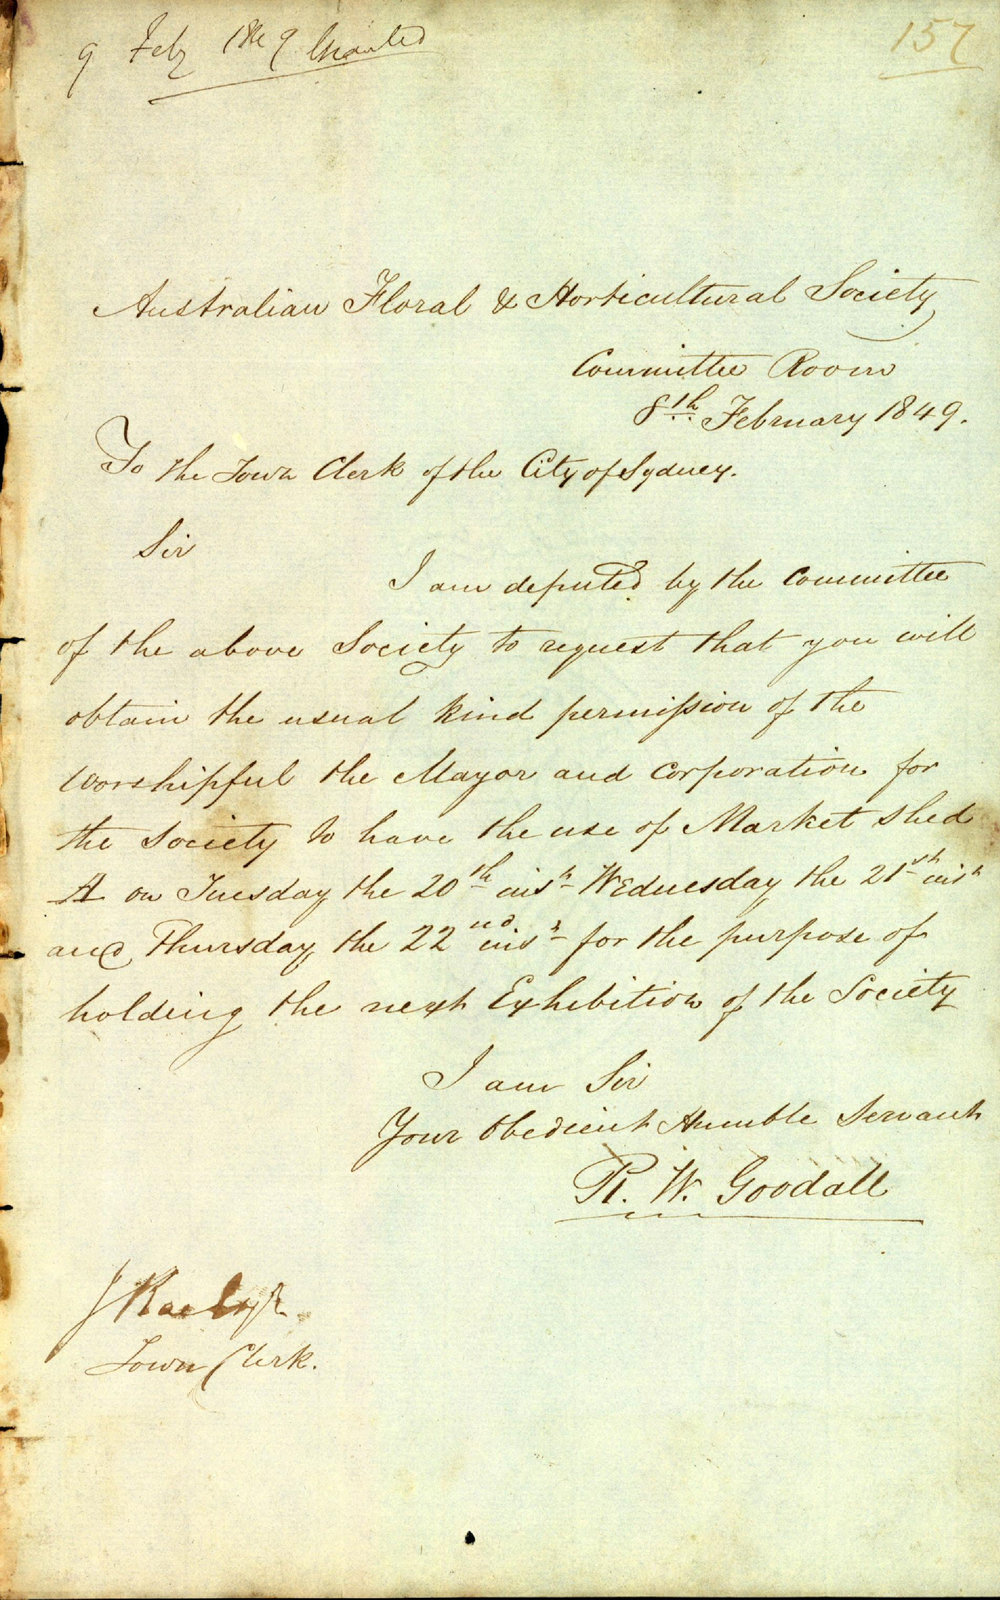 9 Feby 1849 Granted
157
Australian Floral & Horticultural Society
Committee Room
8th February 1849.
To the Town Clerk of the City of Sydney.
Sir
I am deputed by the Committee
of the above Society to request that you will
obtain the usual kind permission of the
Worshipful the Mayor and Corporation for
the Society to have the use of Market Shed
A on Tuesday the 20th inst Wednesday the 21st inst
and Thursday the 22nd inst for the purpose of
holding the next Exhibition of the Society
I am Sir
Your Obedient Humble Servant
R. W. Goodall
J Rae Esqr
Town Clerk.